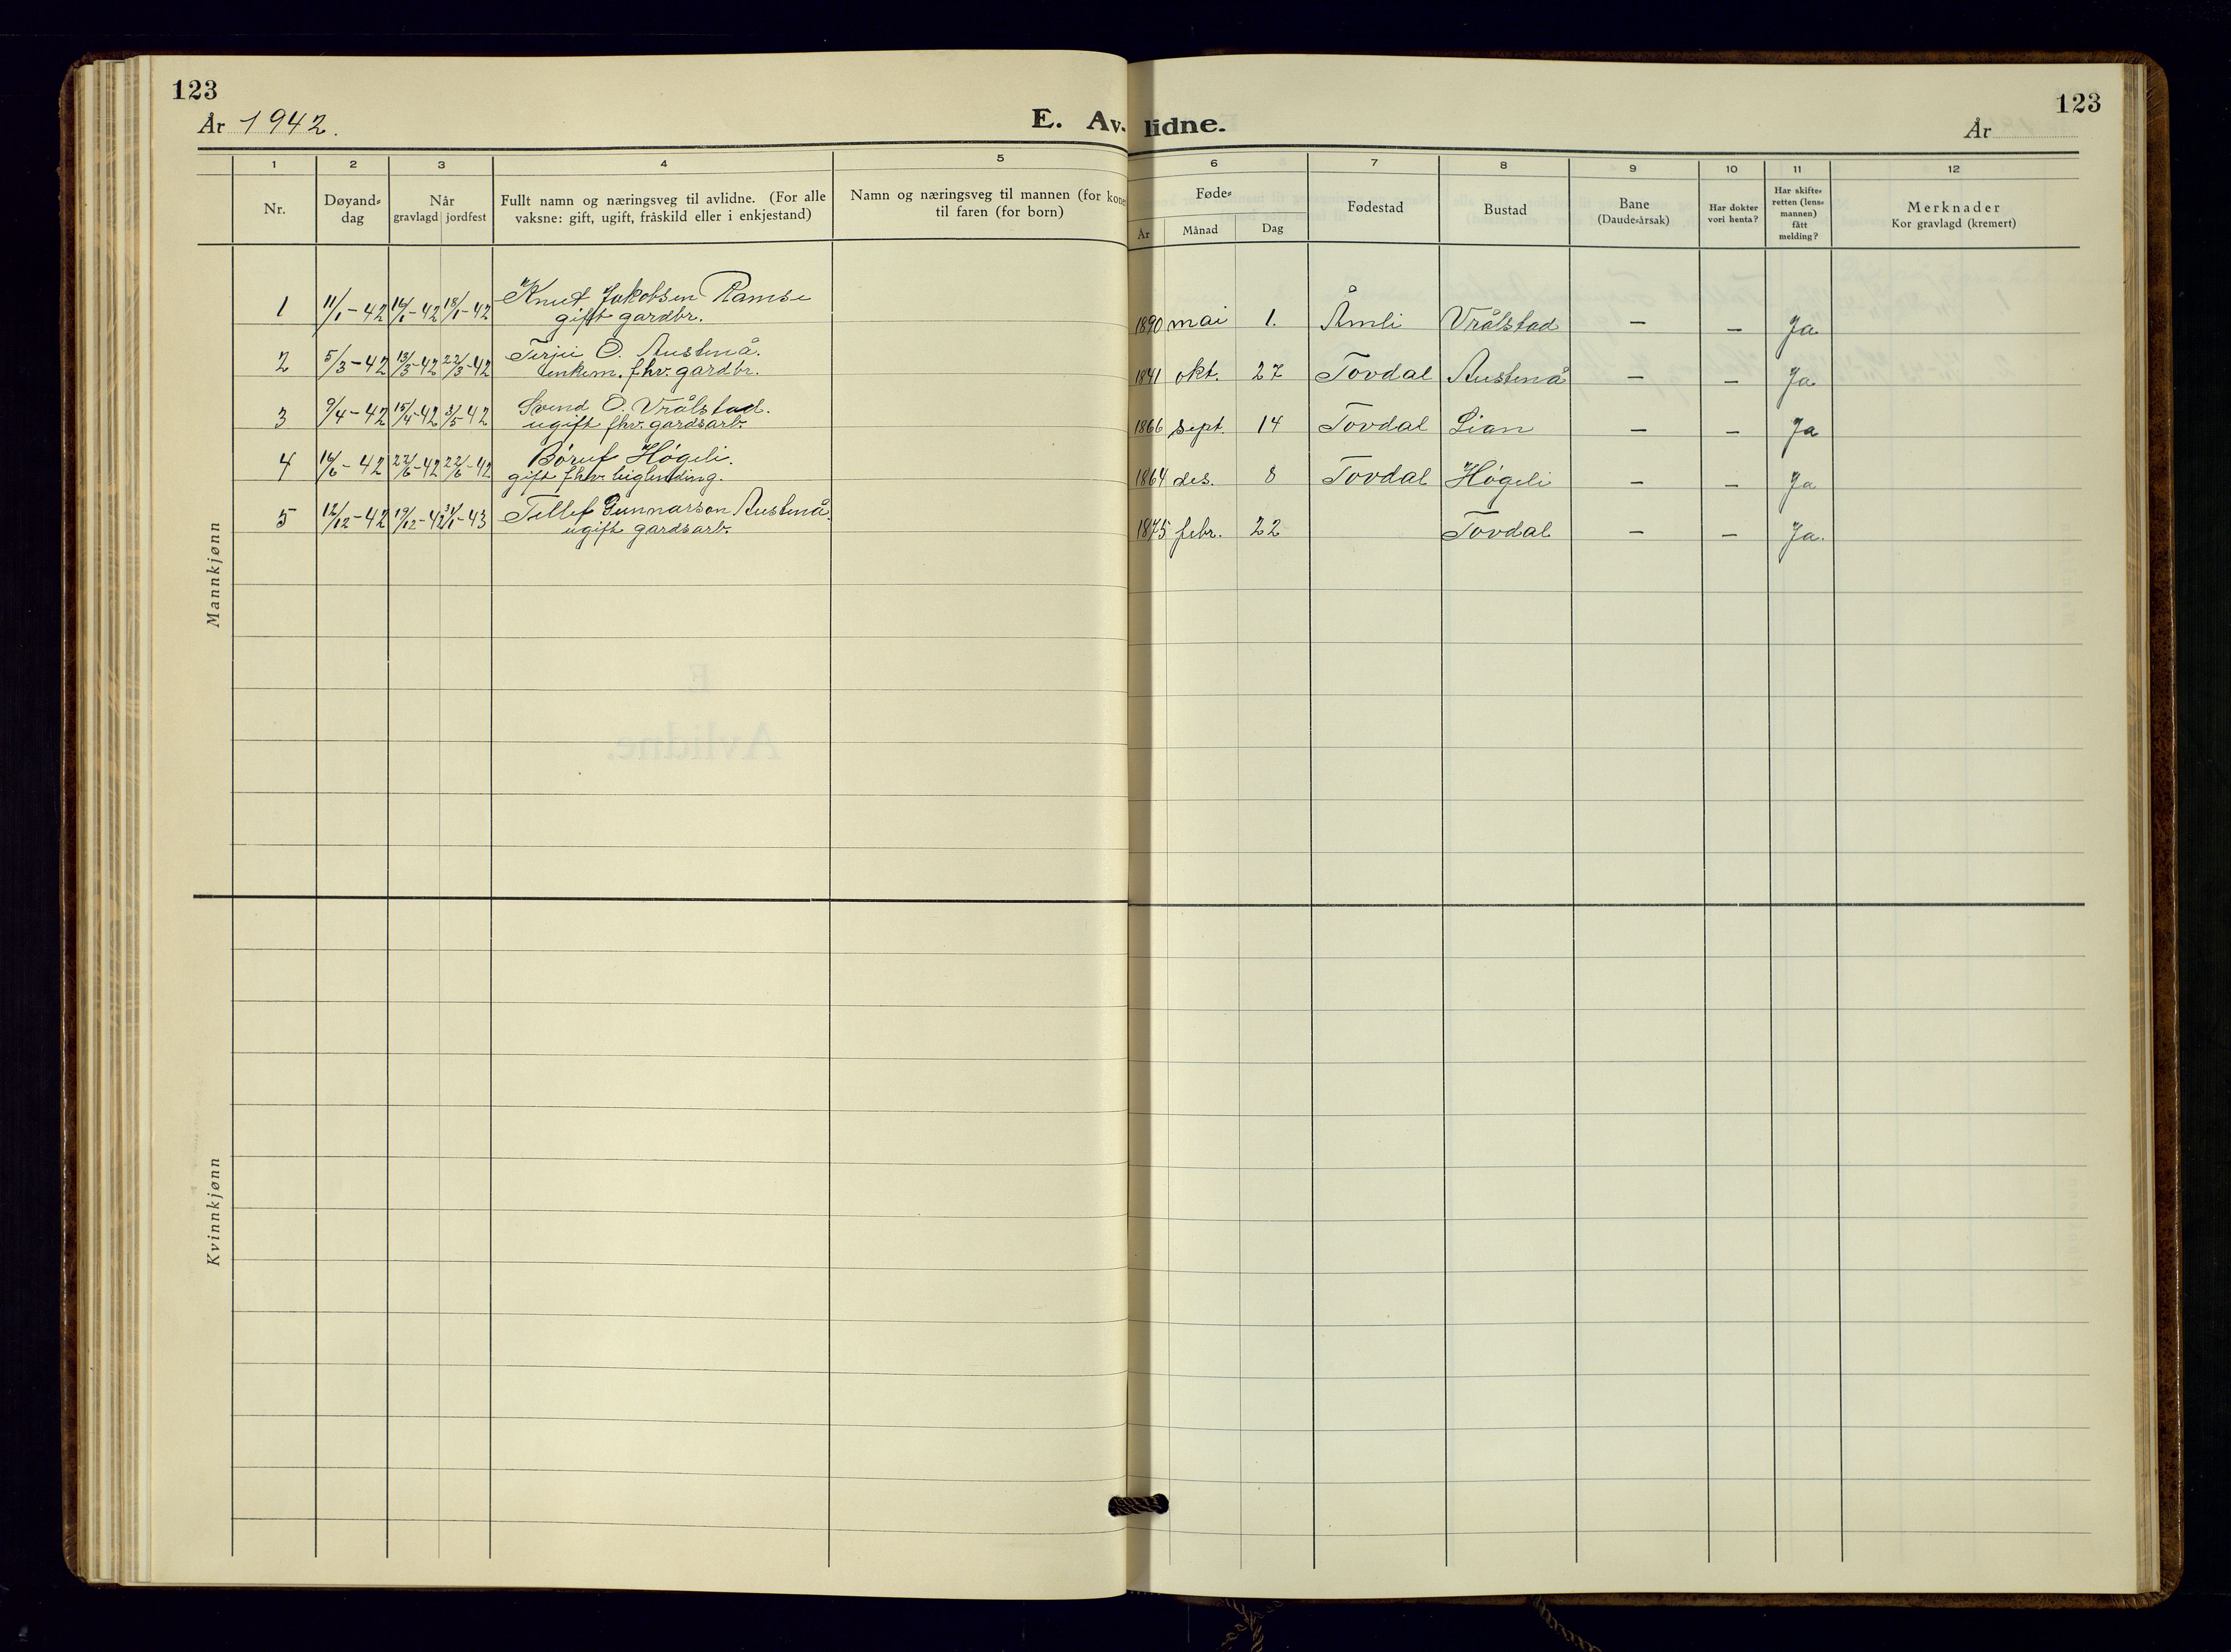 123
År 1942.
E. Av-
lidne.
123
År
1
2
3
4
5
6
7
8
9
10
11
12
Nr.
Døyand-
dag
Når
gravlagd jordfest
Fullt namn og næringsveg til avlidne. (For alle
vaksne: gift, ugift, fråskild eller i enkjestand)
Namn og næringsveg til mannen (for kone
til faren (for born)
Føde-
År Månad Dag
Fødestad
Bustad
Bane
(Daude-årsak)
Har dokter
vori henta?
Har skifte-
retten (lens-
mannen)
fått
melding?
Merknader
Kor gravlagd (kremert)
Mannkjønn
1 11/1-42 16/1-42 18/1-42 Knut Jakobsen Ramse
gift gardbr.
1890 mai 1. Åmli Vrålstad — — Ja
2 5/3-42 13/3-42 22/3-42 Terjei O. Austenå.
enkem. fhv. gardbr.
1841 okt. 27 Tovdal Austenå — — Ja
3 9/4-42 15/4-42 3/5-42 Svend O. Vrålstad.
ugift fhv. gardsarb.
1866 sept. 14 Tovdal Lian — — Ja
4 16/6-42 22/6-42 22/6-42 Børuf Høgeli.
gift fhv. leiglending.
1864 des. 8 Tovdal Høgeli — — Ja
5 12/12-42 19/12-42 -43 Tellef Gunnarson Austenå.
ugift gardsarb.
1875 febr. 22 Tovdal — — Ja.
Kvinnkjønn